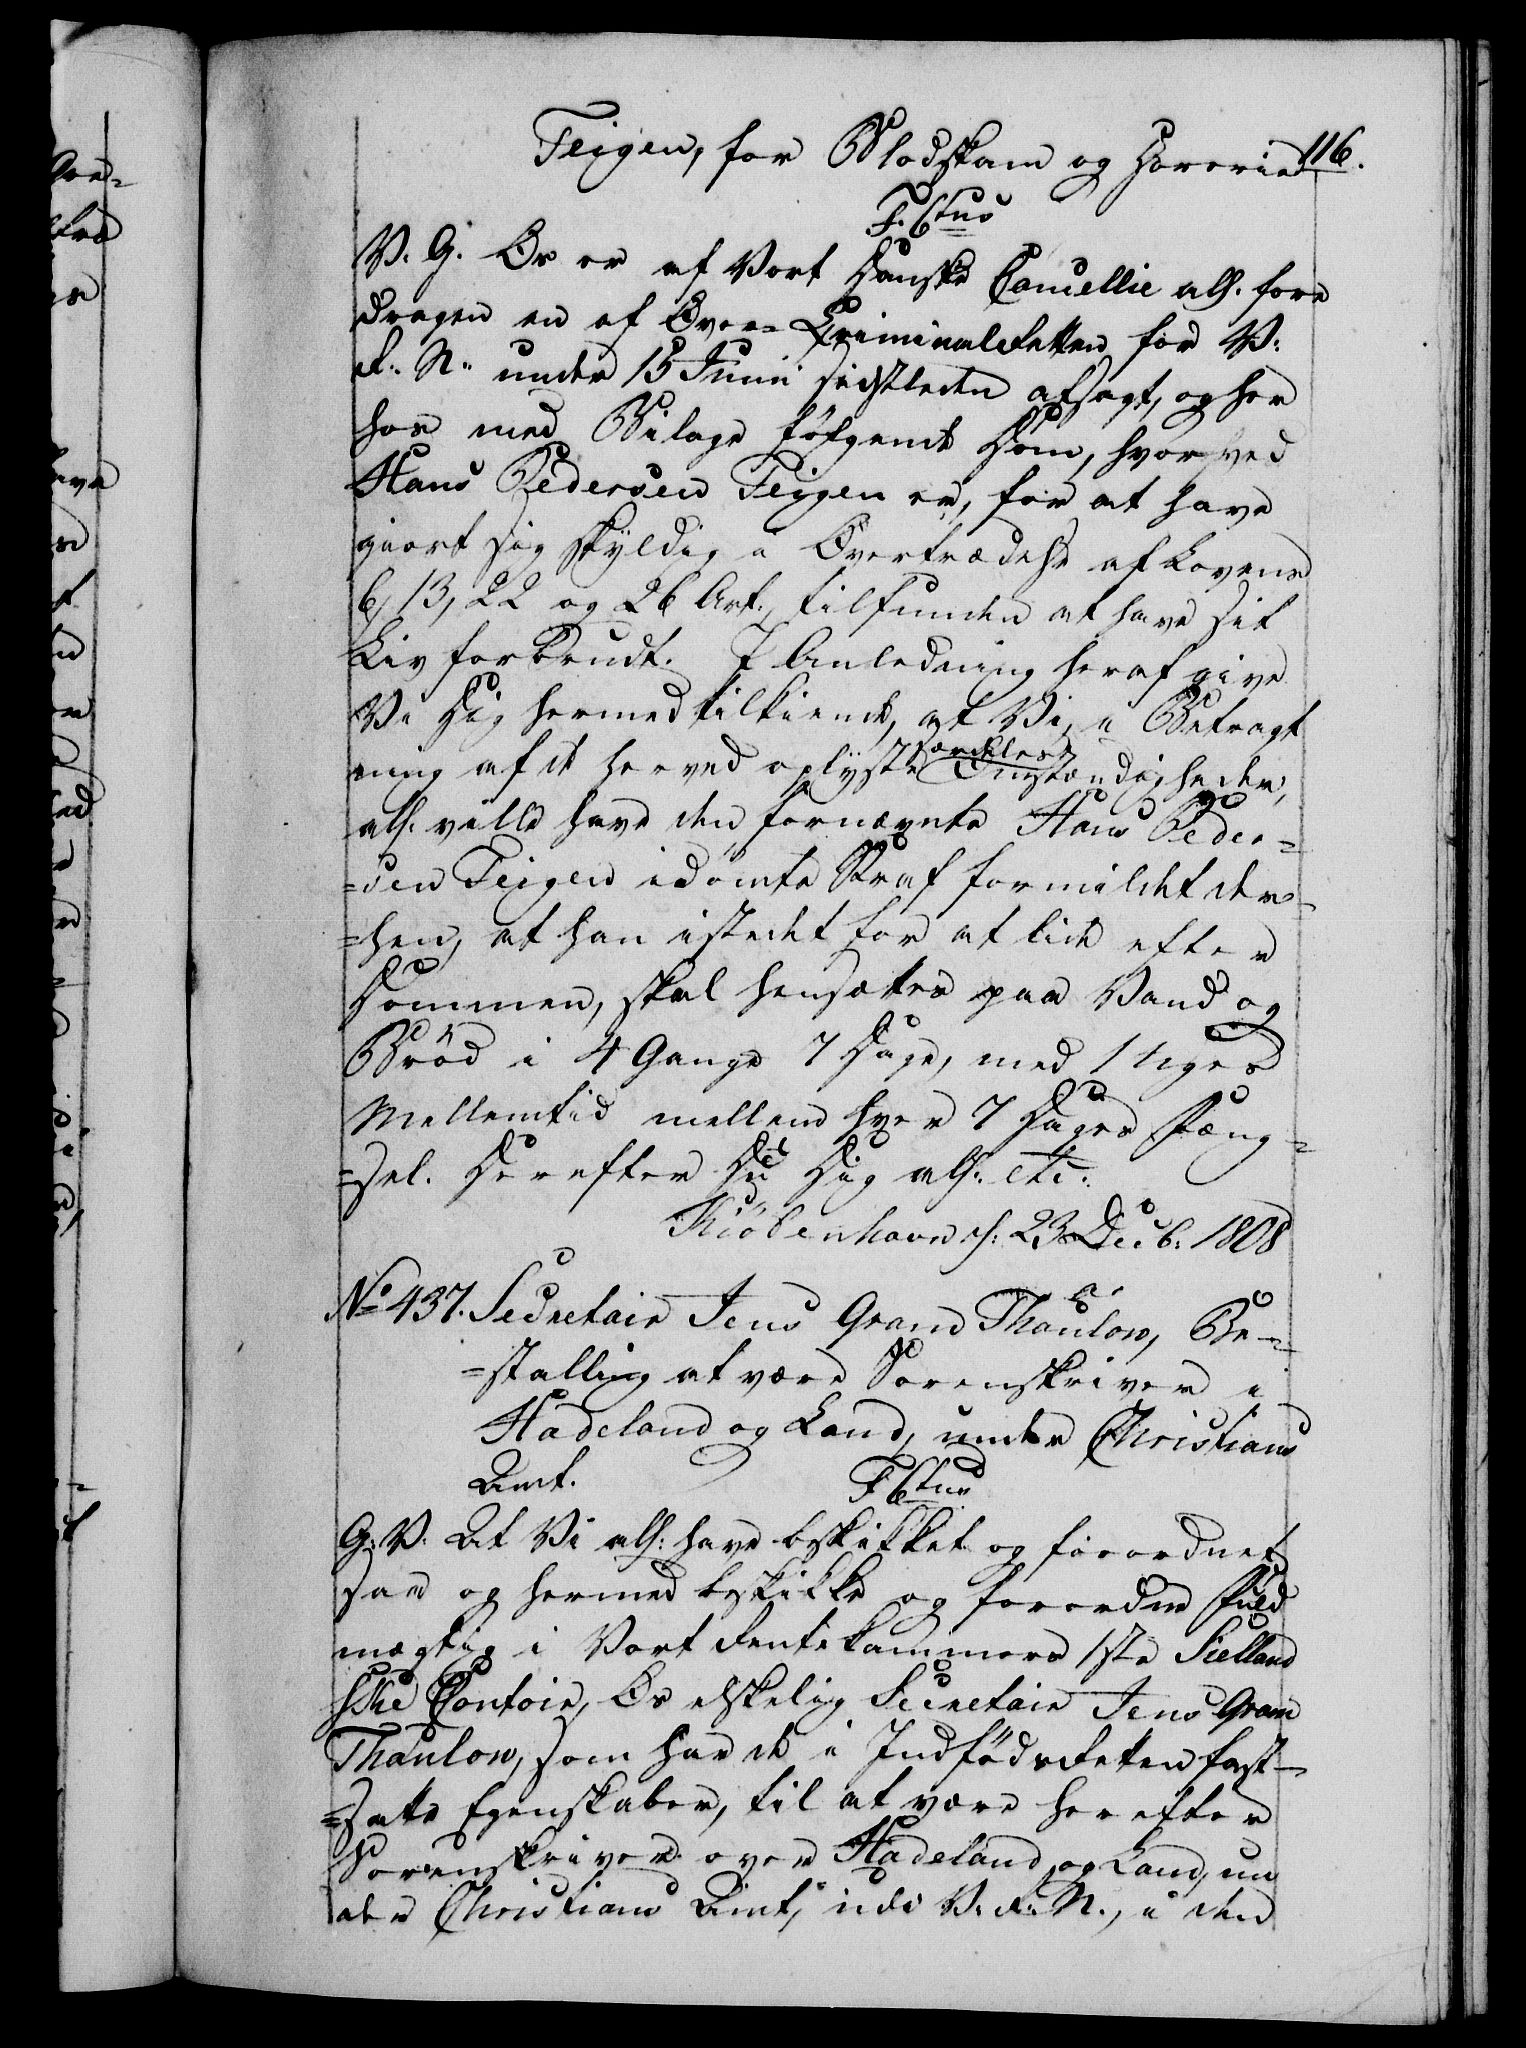 Teigen, for Blodskam og Horerie 116.
F. 6tus
V. G. Os er af Vort Danske Cancellie all. fore
dragen en af Over-Criminalretten for V:
R. N. under 15 Junii sidstleden afsagt, og her
hos med Bilage følgende Dom, hvorved
Hans Pedersen Teigen er, for at have
giort sig skyldig i Overtrædelse af Lovens
6, 13, 22 og 26 Art., tilfunden at have sit
Liv forbrudt. I Anledning heraf give
Vi Dig hermed tilkiende, at Vi, i Betragt
ning af de herved oplyste særdeles Omstændigheder,
all. ville have den fornævnte Hans Peder-
=sen Teigen idømte Straf formildet der-
=hen, at han istedet for at lide efter
Dommen, skal hensættes paa Vand og
Brød i 4 Gange 7 Dage, med 1 Uges
Mellemtid mellem hver 7 Dages Fæng-
=sel. Derefter Du Dig all. etc.
Kiøbenhavn d: 23 Decb: 1808
No 437. Secretair Jens Gram Thaulow, Be-
=stalling at være Sorenskriver i
Hadeland og Land, under Christians
Amt. F 6tus
G: V. At Vi all: have beskikket og forordnet
saa og hermed beskikke og forordne Fuld
mægtig i Vort Rentekammers 1ste Sielland
ske Contoir, Os elskelig Secretair Jens Gram
Thaulow, som har de i Indfødsretten fast-
=satte Egenskaber, til at være herefter
Sorenskriver over Hadeland og Land, un
der Christians Amt, udi V. R. N., i den